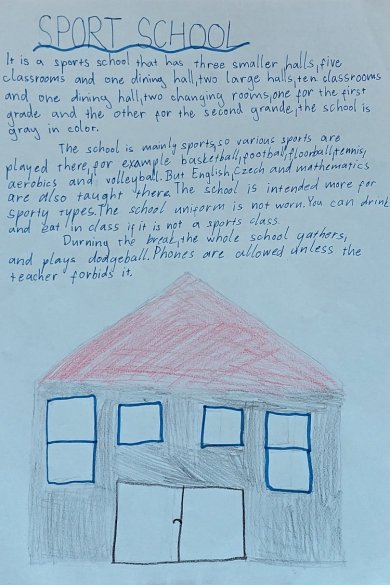 SPORT SCHOOL
It is a sports school that has three smaller halls, five
classrooms and one dining hall, two large halls, ten classrooms
and one dining hall, two changing rooms, one for the first
grade and the other for the second grande, the school is
gray in color.
The school is mainly sports, so various sports are
played there, for example basketball, football, floorball, tennis,
aerobics and volleyball. But English, Czech and mathematics
are also taught there. The school is intended more for
sporty types. The school uniform is not worn. You can drink
and eat in class if it is not a sports class.
Durning the break, the whole school gathers,
and plays dodgeball. Phones are allowed unless the
teacher forbids it.